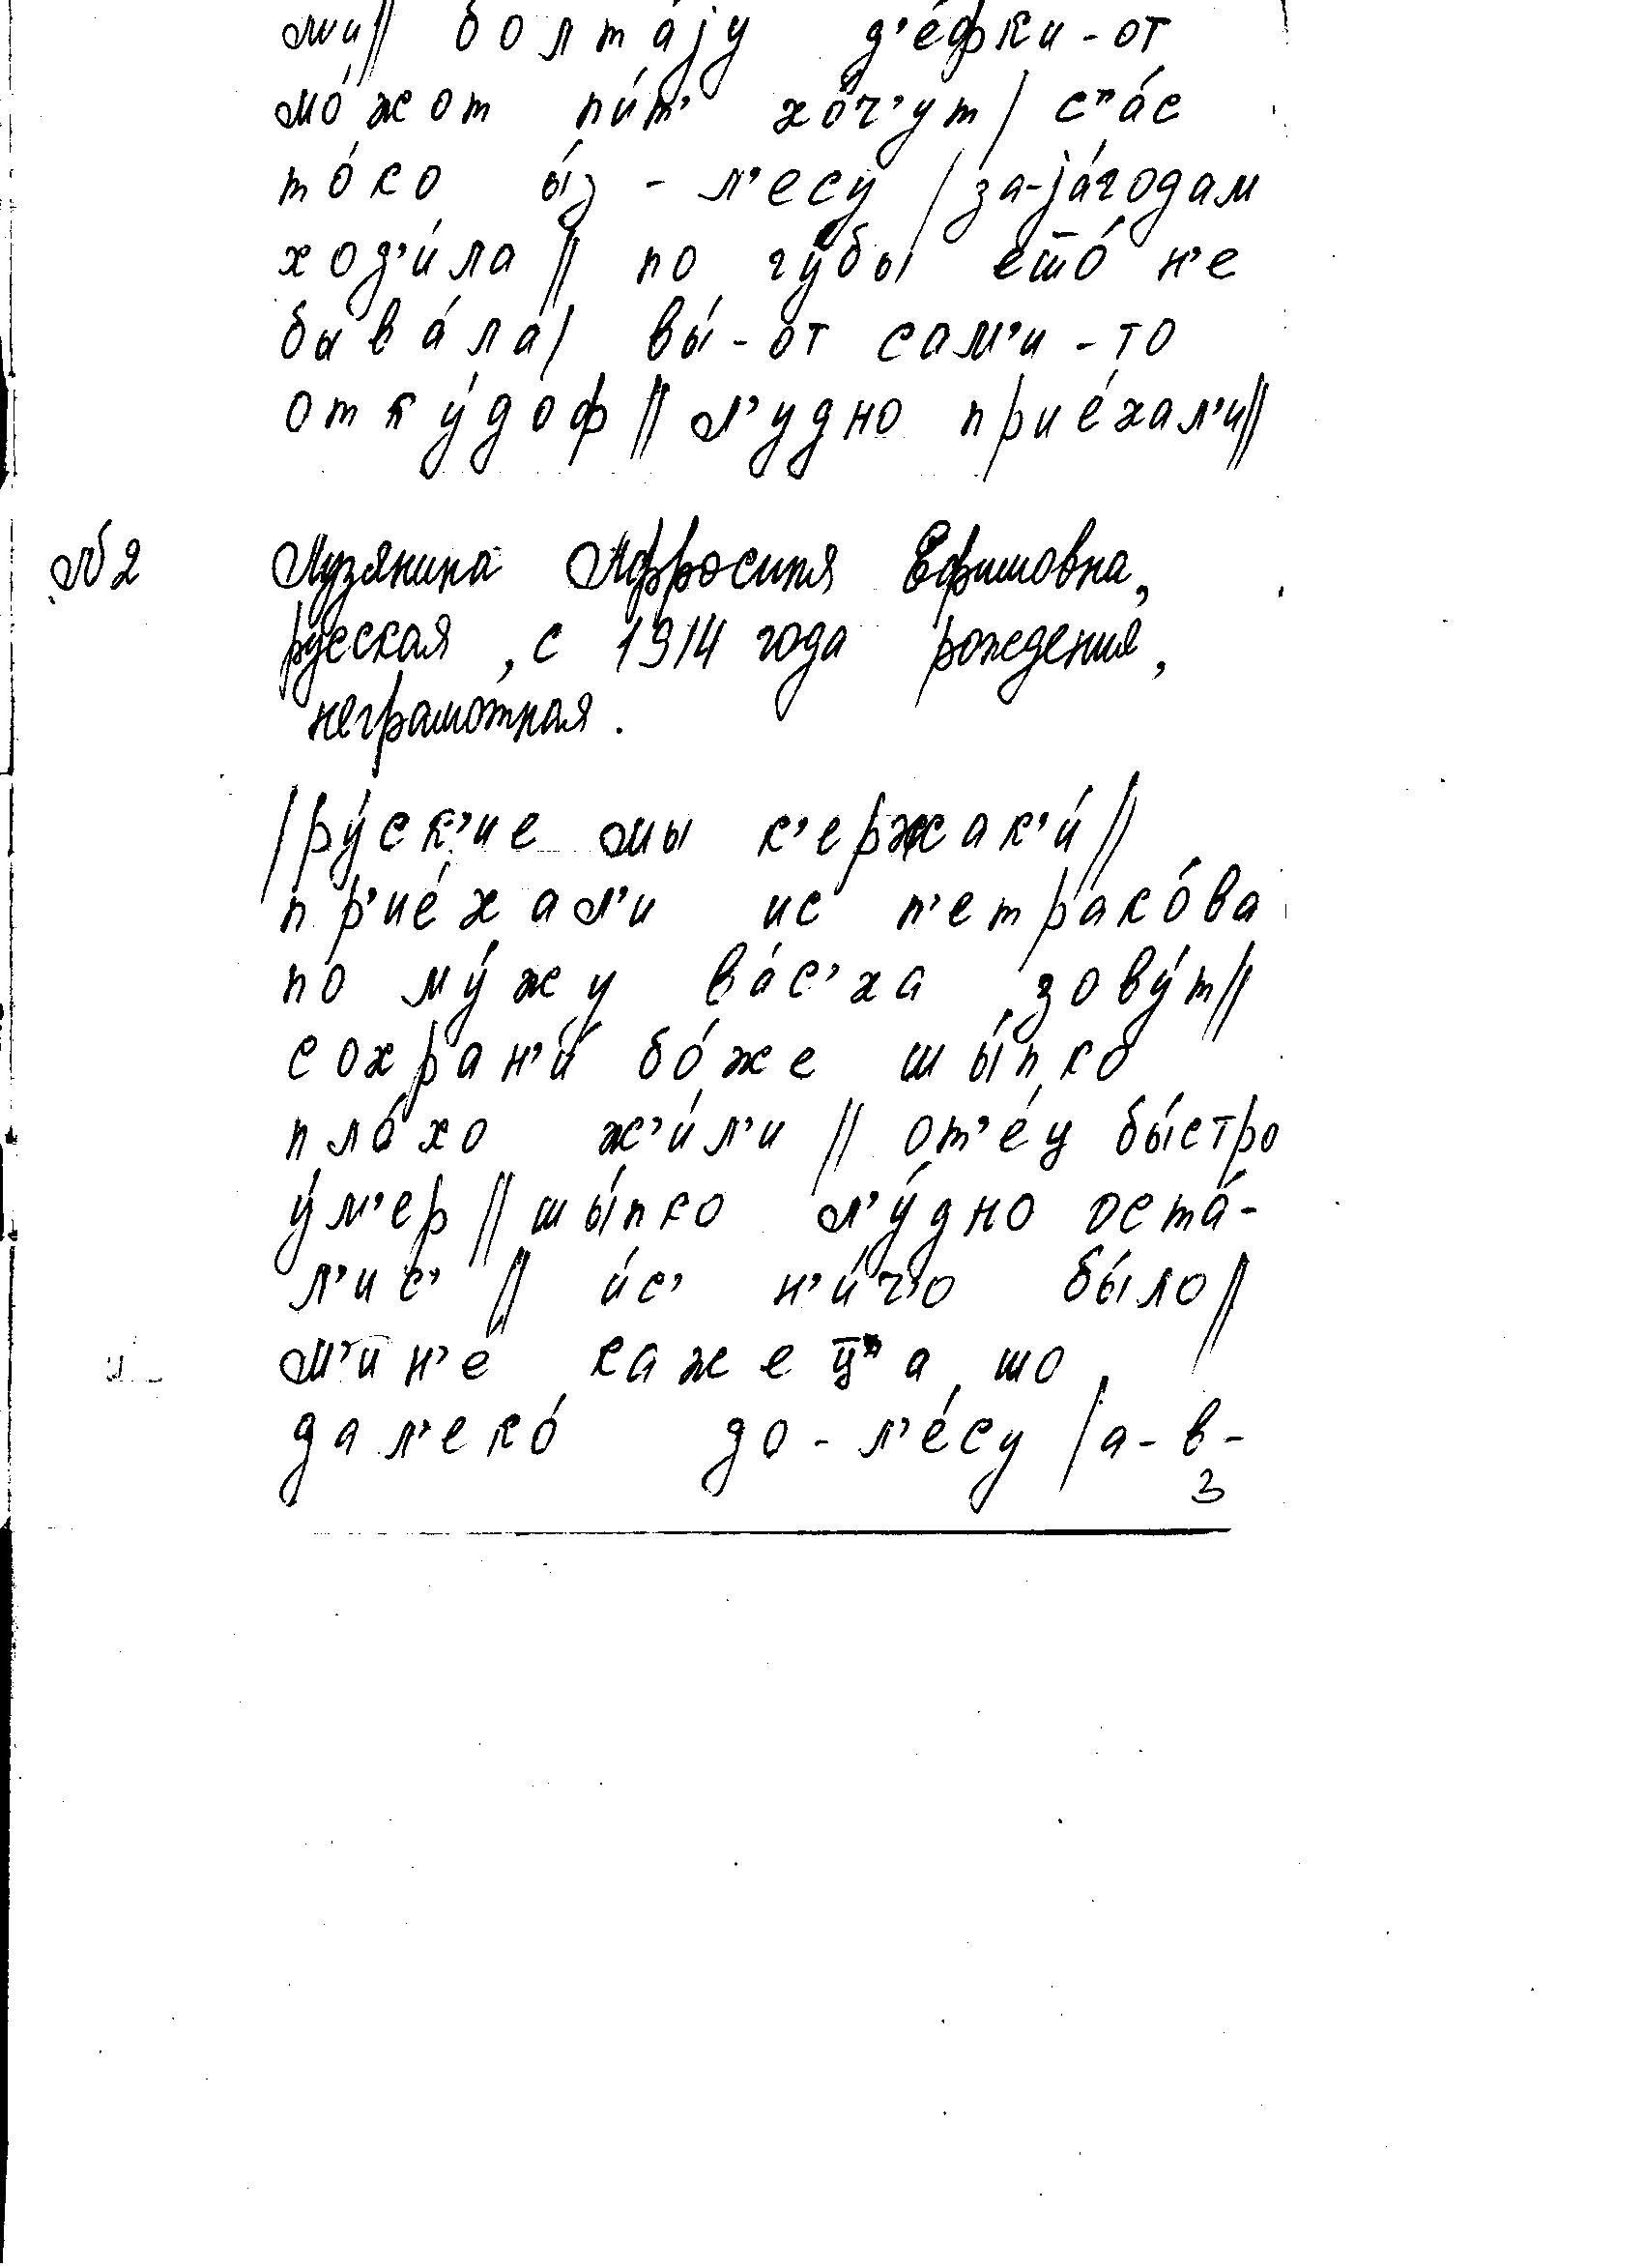 ми// болта́jу д'е́фки-от
мо́жот пи́т' хо́ч'ут/ с'п'а́с
то́ко ы́з-л'есу / за-jа́годам
ход'и́ла// по гу́бы ешо́ н'е
быва́ла/ вы́-от сам'и-то
отку́доф// л'удно прие́хал'и//
№2 Лузянина Афросиния Ефимовна,
русская, с 1914 года рождения,
неграмотная.
/ру́ск'ие мы к'ержак'и́//
пр'ие́хал'и ис п'етрако́ва
по му́жу ва́с'ха зову́т//
сохран'и́ бо́же шы́пко
пло́хо ж'и́л'и // от'е́ц бы́стро
у́м'ер// шы́пко л'у́дно оста́-
л'ис' // и́с' н'и́ч'о бы́ло//
м'ин'е́ кажеца шо
дал'еко́ до-л'е́су /а-в-
3